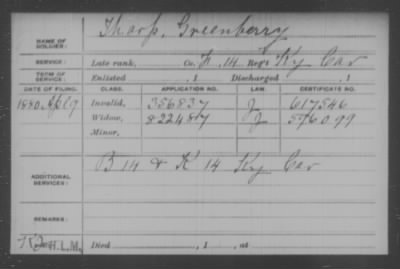 NAME OF SOLDIER: Tharp, Greenberry
SERVICE: Late rank, Co. F, 14 Reg't Ky Cav
TERM OF SERVICE: Enlisted , 1 Discharged , 1
DATE OF FILING. CLASS. APPLICATION NO. LAW. CERTIFICATE NO.
1880 Apl 9 Invalid, 356837 J 617546
Widow, 822487 J 596099
Minor,
ADDITIONAL SERVICES: B 14 & K 14 Ky Cav
REMARKS:
H.L.M. Died , 1 , at